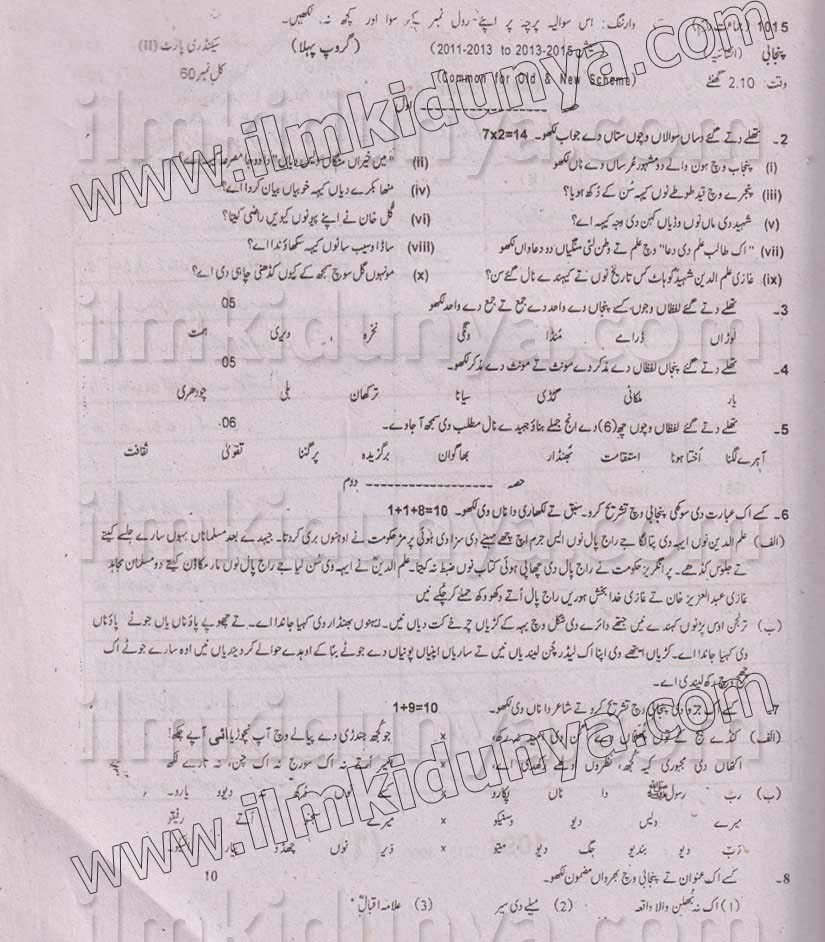 1015 وارننگ: اس سوالیہ پرچہ پر اپنے رول نمبر کے سوا اور کچھ نہ لکھیں۔
پنجابی (2011-2013 to 2013-2015) (گروپ پہلا) سیکنڈری پارٹ (II)
وقت 2.10 گھنٹے (Common for Old & New Scheme) کل نمبر 60
حصہ اول
2۔ تھلے دتے گئے دساں سوالاں وچوں ستاں دے جواب لکھو۔ 7x2=14
(i) پنجاب وچ ہون والے دو مشہور عرساں دے ناں لکھو (ii)
(iii) پنجرے وچ قید طوطے نوں کیہہ سُن کے دُکھ ہویا؟ (iv) متھا بکرے دیاں کیہہ خوبیاں بیان کردا اے؟
(v) شہید دی ماں نوں وڈیاں کہن دی وجہ کیہہ اے؟ (vi) گل خان نے اپنے پیونوں کیویں راضی کیتا؟
(vii) "اک طالب علم دی دعا" وچ علم تے وطن لئی منگیاں دو دعاواں لکھو (viii) ساڈا وسیب سانوں کیہہ سکھاؤندا اے؟
(ix) غازی علم الدین شہید کوہاٹ کس تاریخ نوں تے کیہندے نال گئے سن؟ (x) مونہوں گل سوچ سمجھ کے کیوں کڈھنی چاہی دی اے؟
3۔ تھلے دتے گئے لفظاں وچوں کسے پنجاں دے واحد دے جمع تے جمع دے واحد لکھو 05
لوڑاں ڈرامے مُنڈا ونگی نخرہ ویری ہمت
4۔ تھلے دتے گئے پنجاں لفظاں دے مذکر دے مونث تے مونث دے مذکر لکھو۔ 05
یار ملکانی گڈی سیانا ترکھان بلی چودھری
5۔ تھلے دتے گئے لفظاں وچوں چھ (6) دے انج جملے بناؤ جیہدے نال مطلب دی سمجھ آ جاوے۔ 06
آہرے لگنا اُختا ہونا استقامت بھنڈار بھاگوان برگزیدہ پرگننا تقویٰ ثقافت
حصہ دوم
6۔ کسے اک عبارت دی سوکھی پنجابی وچ تشریح کرو۔ سبق تے لکھاری دا ناں وی لکھو۔ 1+1+8=10
(الف) علم الدین نوں ایہہ وی پتا لگا جے راج پال نوں ایس جرم اچ چھے مہینے دی سزا وی ہوئی پر مڑ حکومت نے اوہنوں بری کر دتا۔ جیہدے بعد مسلماناں بہوں سارے جلسے کیتے
تے جلوس کڈھے۔ پر انگریز حکومت نے راج پال دی چھاپی ہوئی کتاب نوں ضبط نہ کیتا۔ علم الدینؒ نے ایہہ وی سُن لیا جے راج پال نوں مار مکاون کیتے دو مسلمان مجاہد
غازی عبدالعزیز خان تے غازی خدا بخش ہوریں راج پال اُتے وکھو وکھ حملے کر چُکے نیں
(ب) ترنجن اوس پڑنوں کہندے نیں جتھے دائرے دی شکل وچ بہہ کے کڑیاں چرخے کت دیاں نیں۔ ایہوں بھنڈار وی کہیا جاندا اے۔ تے چھوپے پاؤناں یاں جوٹے پاؤناں
وی کہیا جاندا اے۔ کڑیاں ایتھے وی اپنا اک لیڈر چُن لیندیاں نیں تے ساریاں اپنیاں پونیاں دے جوٹے بنا کے اوہدے حوالے کر دیندیاں نیں اوہ سارے جوٹے اک
وچ رکھ لیندی اے۔
7۔ کسے اک جزو دی پنجابی وچ تشریح کرو تے شاعر دا ناں وی لکھو۔ 1+9=10
(الف) x جو کُجھ جندڑی دے پیالے وچ آپ نچوڑیا ای آپے چکھ!
اکھاں دی مجبوری کیہ کجھ، نظروں اوہلے رکھدی اے، x نہ اک سورج نہ اک چن، نہ تارے لکھ
(ب) ربّ رسولﷺ دا ناں پکارو x دیو یارو۔
میرے دیس دیو وسنیکو x میرے رفیقو
ربّ دیو بندیو جگ دیو متیو x ویر نوں چھڈو پیار
8۔ کسے اک عنوان تے پنجابی وچ بھرواں مضمون لکھو۔ 10
(1) اک نہ بھُلن والا واقعہ (2) میلے دی سیر (3) علامہ اقبالؒ
www.ilmkidunya.com
ilmkidunya.com
ilmkidunya.com
ilmkidunya.com
www.ilmkidunya.com
ilmkidunya.com